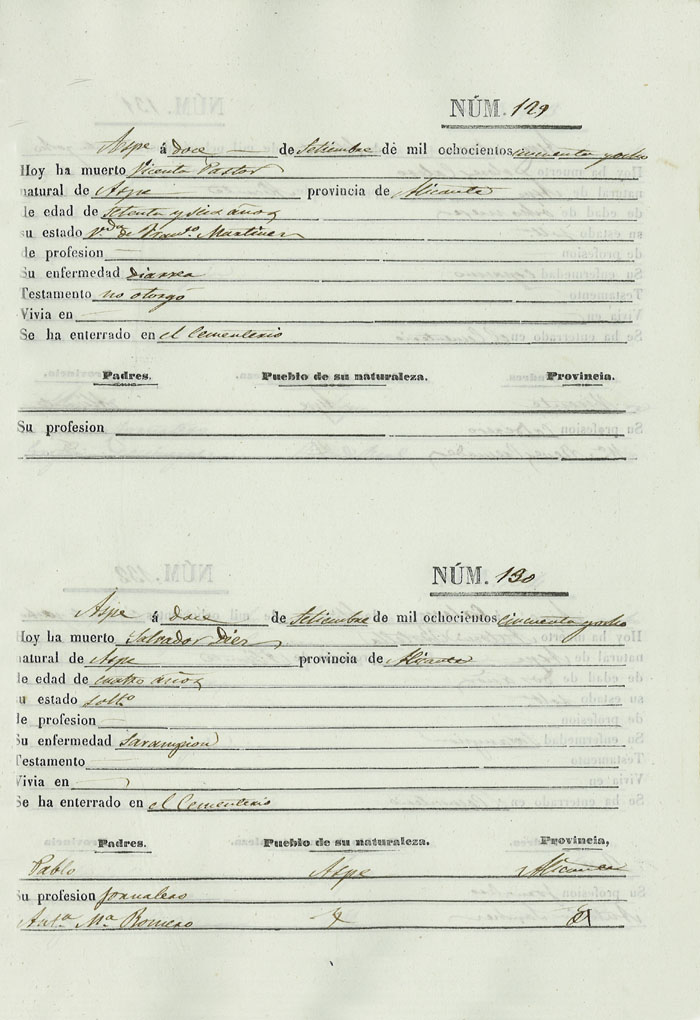 NÚM. 129
Aspe á doce de Setiembre de mil ochocientos cincuenta y ocho
Hoy ha muerto Vicenta Pastor
natural de Aspe provincia de Alicante
de edad de setenta y seis años
su estado V.da de Fran.co Martinez
de profesion
Su enfermedad Diarrea
Testamento no otorgó
Vivia en
Se ha enterrado en el Cementerio
Padres. Pueblo de su naturaleza. Provincia.
Su profesion
NÚM. 130
Aspe á doce de Setiembre de mil ochocientos cincuenta y ocho
Hoy ha muerto Salvador Diez
natural de Aspe provincia de Alicante
de edad de cuatro años
su estado solt.o
de profesion
Su enfermedad Sarampion
Testamento
Vivia en
Se ha enterrado en el Cementerio
Padres. Pueblo de su naturaleza. Provincia,
Pablo Aspe Alicante
Su profesion Jornalero
Ant.a M.a Romero